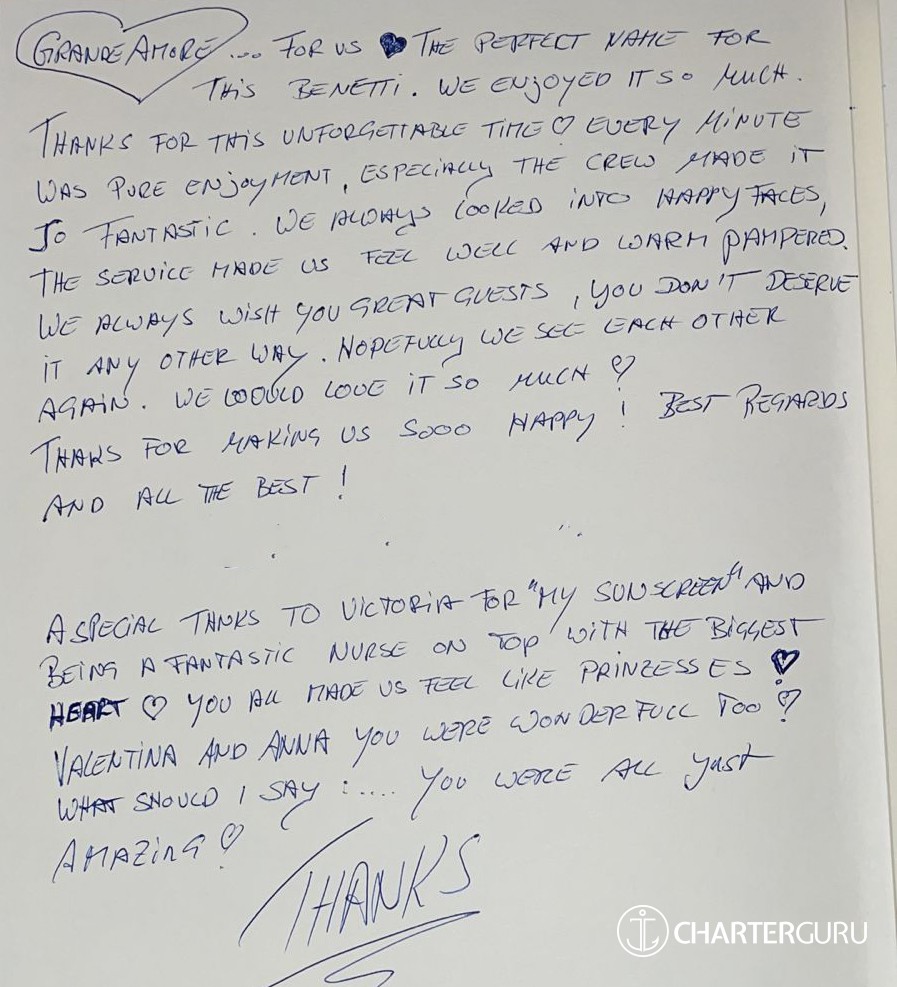 GRANDE AMORE ... FOR US ♥ THE PERFECT NAME FOR
THIS BENETTI. WE ENJOYED IT SO MUCH.
THANKS FOR THIS UNFORGETTABLE TIME ♡ EVERY MINUTE
WAS PURE ENJOYMENT, ESPECIALLY THE CREW MADE IT
SO FANTASTIC. WE ALWAYS LOOKED INTO HAPPY FACES,
THE SERVICE MADE US FEEL WELL AND WARM PAMPERED.
WE ALWAYS WISH YOU GREAT GUESTS, YOU DON'T DESERVE
IT ANY OTHER WAY. HOPEFULLY WE SEE EACH OTHER
AGAIN. WE WOULD LOVE IT SO MUCH ♡
THANKS FOR MAKING US SOOO HAPPY! BEST REGARDS
AND ALL THE BEST!
A SPECIAL THANKS TO VICTORIA FOR "MY SUNSCREEN" AND
BEING A FANTASTIC NURSE ON TOP WITH THE BIGGEST
HEART ♡ YOU ALL MADE US FEEL LIKE PRINZESSES ♡
VALENTINA AND ANNA YOU WERE WONDERFULL TOO ♡
WHAT SHOULD I SAY :.... YOU WERE ALL YUST
AMAZING ♡
THANKS
CHARTERGURU